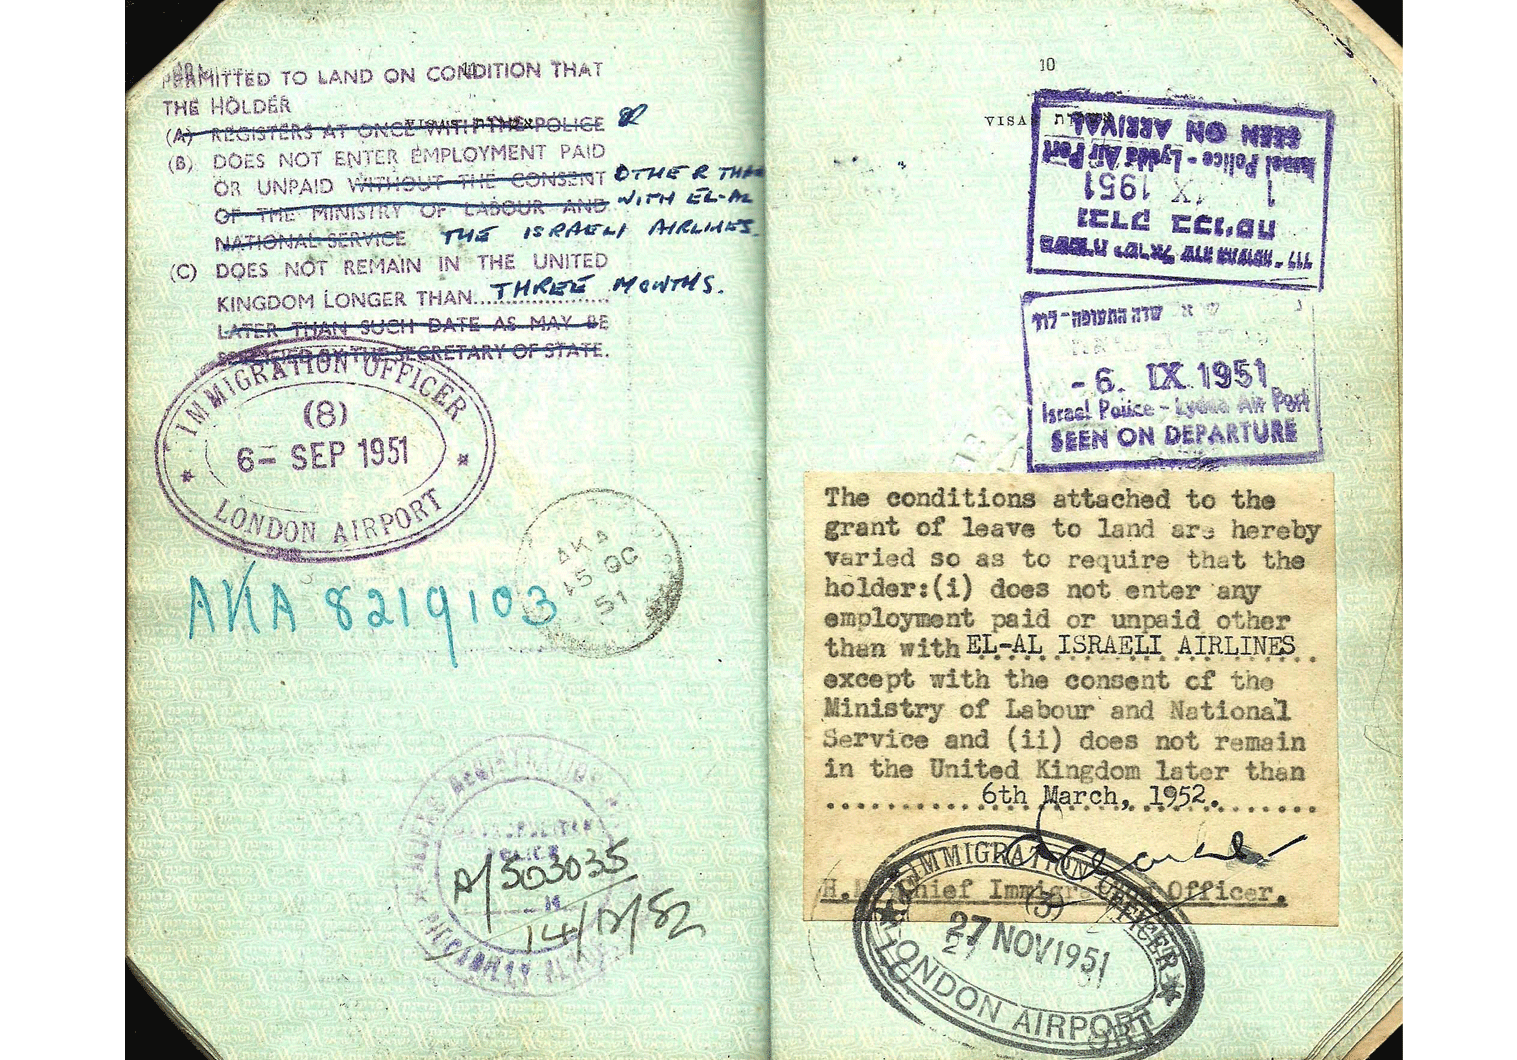 PERMITTED TO LAND ON CONDITION THAT
THE HOLDER
(A) REGISTERS AT ONCE WITH THE POLICE
(B) DOES NOT ENTER EMPLOYMENT PAID
OR UNPAID WITHOUT THE CONSENT OTHER THAN
OF THE MINISTRY OF LABOUR AND WITH EL-AL
NATIONAL SERVICE THE ISRAELI AIRLINES.
(C) DOES NOT REMAIN IN THE UNITED
KINGDOM LONGER THAN THREE MONTHS.
LATER THAN SUCH DATE AS MAY BE
SPECIFIED BY THE SECRETARY OF STATE.
IMMIGRATION OFFICER
(8)
6- SEP 1951
LONDON AIRPORT
AKA
15 OC
51
AKA 8219103
ALIENS REGISTRATION
METROPOLITAN
POLICE
A/503035
14/12/52
PICCADILLY
10
VISAS
SEEN ON ARRIVAL
Israel Police - Lydda Air Port
1 IX 1951
נבדק בכניסה
משטרת ישראל שדה התעופה - לוד
שדה התעופה - לוד
- 6. IX 1951
Israel Police - Lydda Air Port
SEEN ON DEPARTURE
The conditions attached to the
grant of leave to land are hereby
varied so as to require that the
holder:(i) does not enter any
employment paid or unpaid other
than with EL-AL ISRAELI AIRLINES
except with the consent of the
Ministry of Labour and National
Service and (ii) does not remain
in the United Kingdom later than
6th March, 1952.
H.M. Chief Immigration Officer.
IMMIGRATION OFFICER
(3)
27 NOV 1951
LONDON AIRPORT